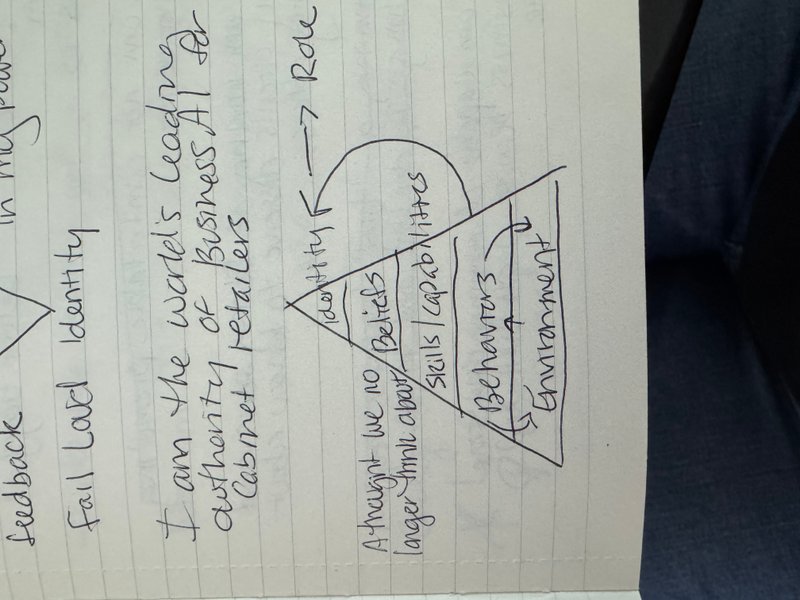 feedback
in my power
Fail Lord Identity
I am the world's leading
authority of Business AI for
Cabinet retailers
Identity
→ Role
A thought we no
longer think about
Beliefs
Skills/capabilities
Behaviors
Environment